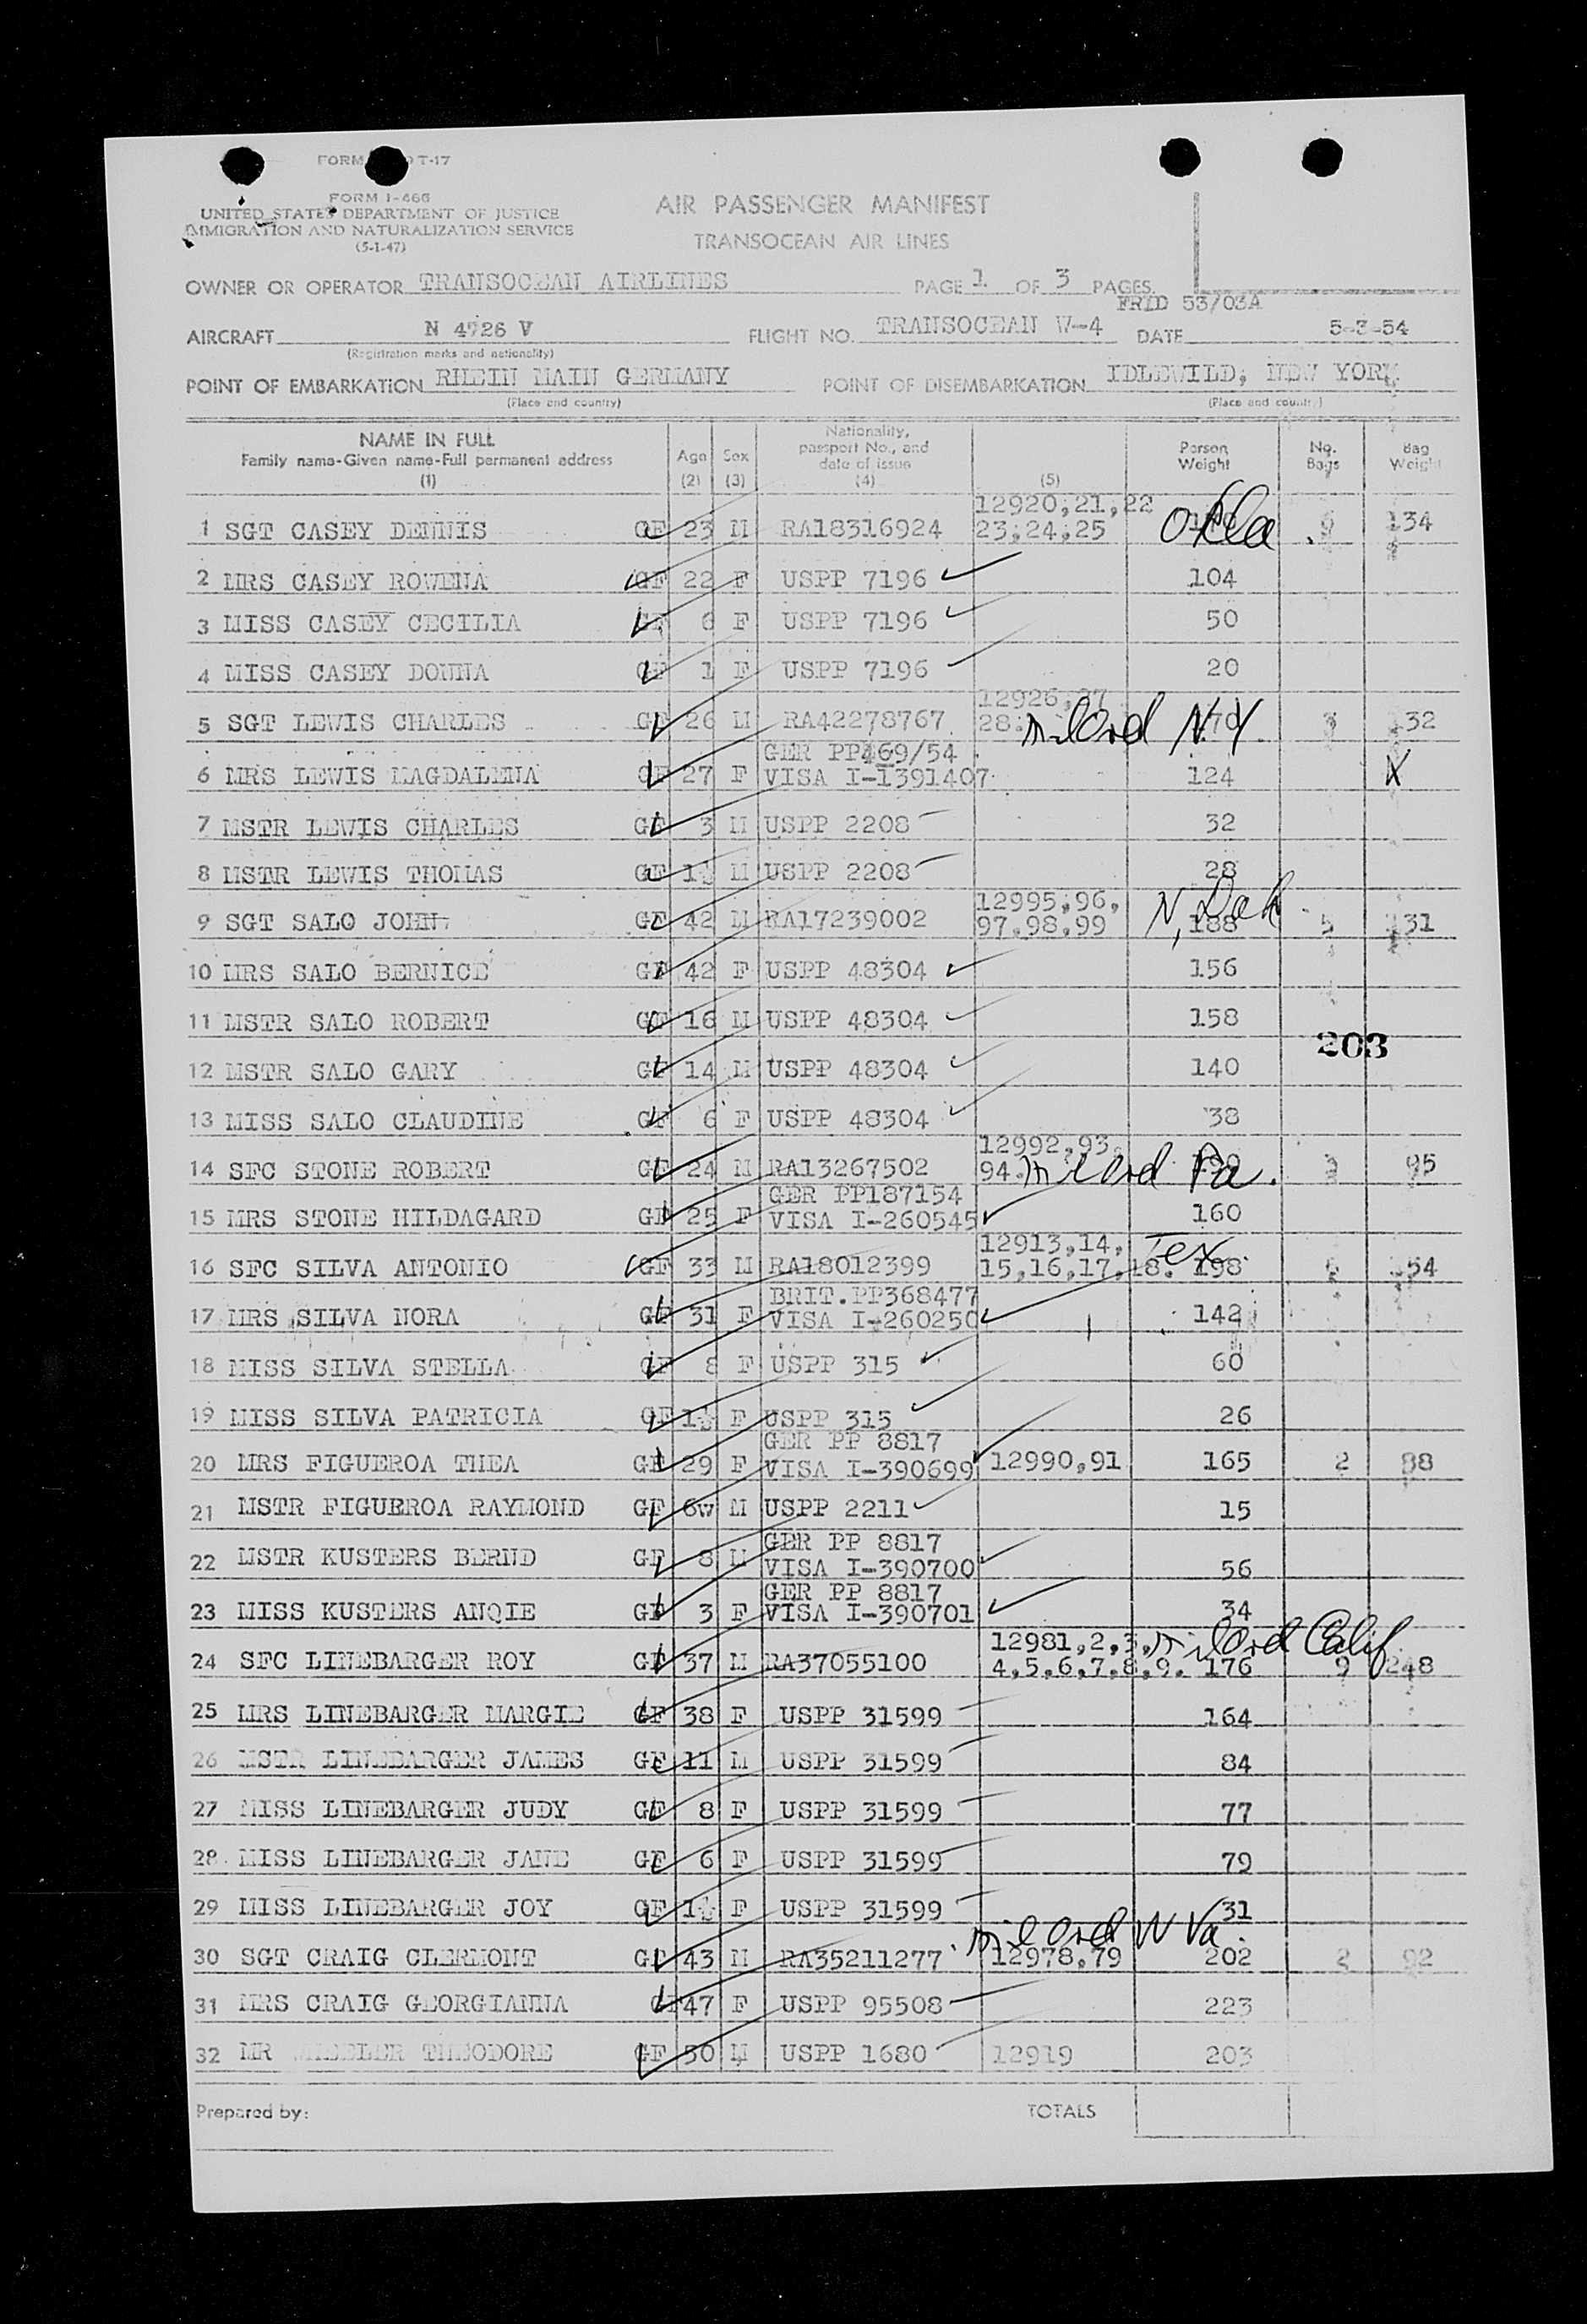 FORM T-17
FORM I-466
UNITED STATES DEPARTMENT OF JUSTICE
IMMIGRATION AND NATURALIZATION SERVICE
(5-1-47)
AIR PASSENGER MANIFEST
TRANSOCEAN AIR LINES
OWNER OR OPERATOR TRANSOCEAN AIRLINES PAGE 1 OF 3 PAGES
FRID 53/03A
AIRCRAFT N 4726 V FLIGHT NO. TRANSOCEAN W-4 DATE 5-3-54
(Registration marks and nationality)
POINT OF EMBARKATION RHEIN MAIN GERMANY POINT OF DISEMBARKATION IDLEWILD, NEW YORK
(Place and country) (Place and country)
NAME IN FULL
Family name-Given name-Full permanent address
(1)
Age
(2)
Sex
(3)
Nationality,
passport No., and
date of issue
(4)
(5)
Person
Weight
No.
Bags
Bag
Weight
12920,21,22
1 SGT CASEY DENNIS GF 23 M RA18316924 23,24,25 Okla 6 134
2 MRS CASEY ROWENA GF 22 F USPP 7196 104
3 MISS CASEY CECILIA GF 6 F USPP 7196 50
4 MISS CASEY DONNA GF 1 F USPP 7196 20
12926,27
5 SGT LEWIS CHARLES GF 26 M RA42278767 28. mil ord N.Y. 3 132
GER PP469/54
6 MRS LEWIS MAGDALENA GF 27 F VISA I-1391407 124 X
7 MSTR LEWIS CHARLES GF 3 M USPP 2208 32
8 MSTR LEWIS THOMAS GF 1½ M USPP 2208 28
12995,96,
9 SGT SALO JOHN GF 42 M RA17239002 97,98,99 N, Dak 188 5 131
10 MRS SALO BERNICE GF 42 F USPP 48304 156
11 MSTR SALO ROBERT GF 16 M USPP 48304 158
203
12 MSTR SALO GARY GF 14 M USPP 48304 140
13 MISS SALO CLAUDINE GF 6 F USPP 48304 38
12992,93,
14 SFC STONE ROBERT GF 24 M RA13267502 94. mil ord Pa. 3 95
GER PP187154
15 MRS STONE HILDAGARD GF 25 F VISA I-260545 160
12913,14, Tex.
16 SFC SILVA ANTONIO GF 33 M RA18012399 15,16,17,18. 198 6 154
BRIT.PP368477
17 MRS SILVA NORA GF 31 F VISA I-260250 142
18 MISS SILVA STELLA GF 8 F USPP 315 60
19 MISS SILVA PATRICIA GF 1½ F USPP 315 26
GER PP 8817
20 MRS FIGUEROA THEA GF 29 F VISA I-390699 12990,91 165 2 88
21 MSTR FIGUEROA RAYMOND GF 6w M USPP 2211 15
GER PP 8817
22 MSTR KUSTERS BERND GF 8 M VISA I-390700 56
GER PP 8817
23 MISS KUSTERS ANQIE GF 3 F VISA I-390701 34
12981,2,3, mil ord Calif
24 SFC LINEBARGER ROY GF 37 M RA37055100 4,5,6,7,8,9. 176 9 248
25 MRS LINEBARGER MARGIE GF 38 F USPP 31599 164
26 MSTR LINEBARGER JAMES GF 11 M USPP 31599 84
27 MISS LINEBARGER JUDY GF 8 F USPP 31599 77
28 MISS LINEBARGER JANE GF 6 F USPP 31599 79
29 MISS LINEBARGER JOY GF 1½ F USPP 31599 31
mil ord W Va.
30 SGT CRAIG CLERMONT GF 43 M RA35211277 12978,79 202 2 92
31 MRS CRAIG GEORGIANNA GF 47 F USPP 95508 223
32 MR THEODORE GF 50 M USPP 1680 12919 203
Prepared by: TOTALS